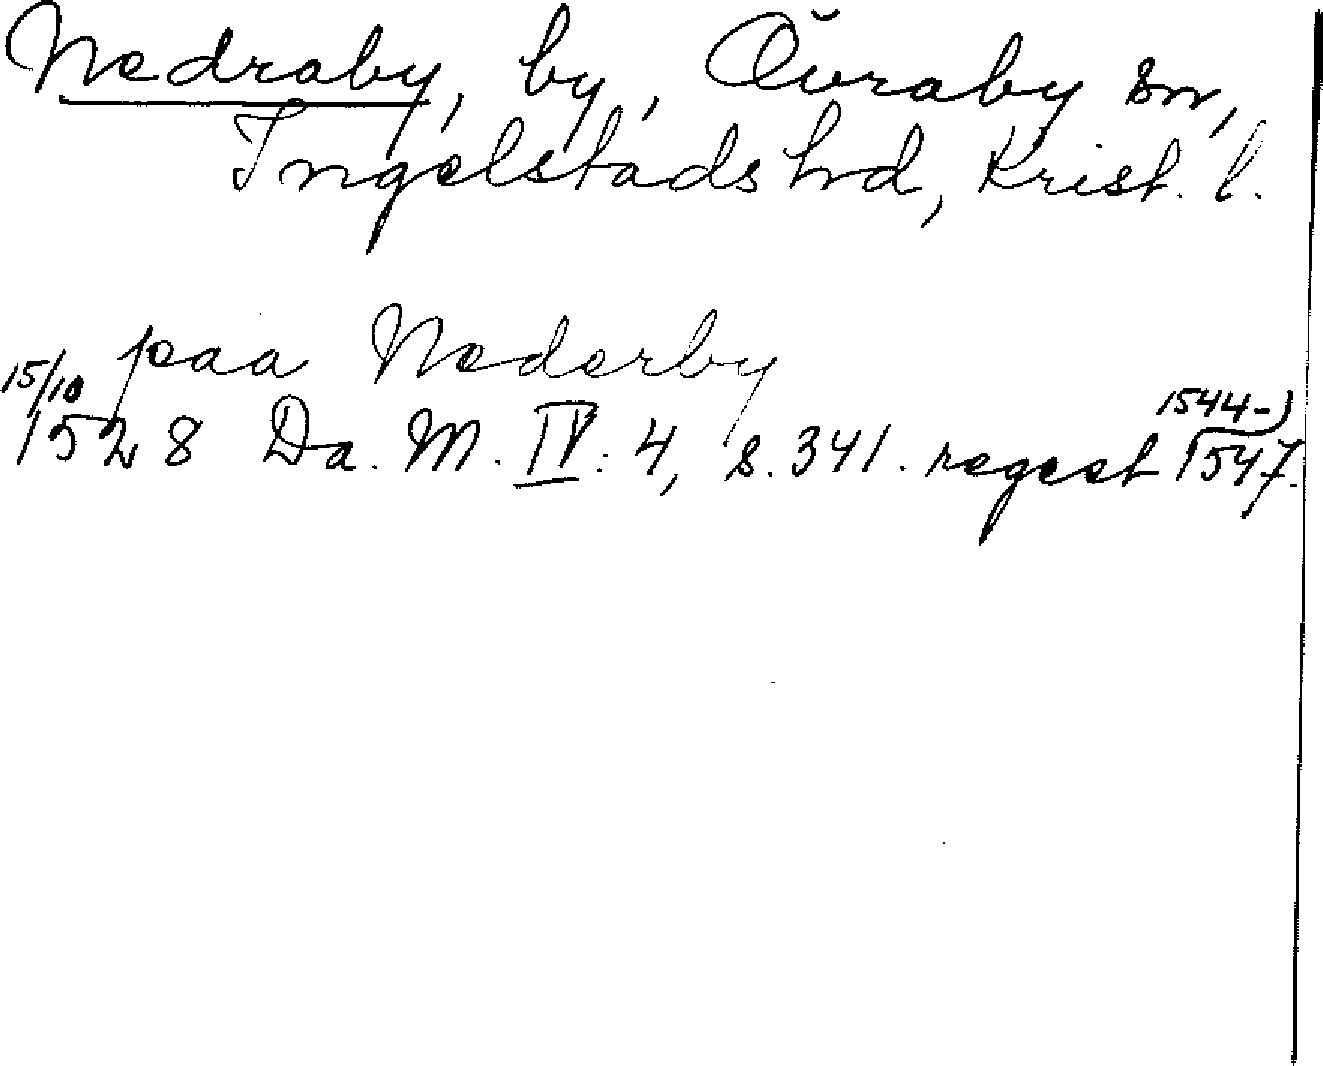 Nedraby, by, Övraby sn,
Ingelstads hrd, Krist. l.
paa Nederby
15/10 1528 Da. M. IV: 4, s. 341. regest (1544-)1547.